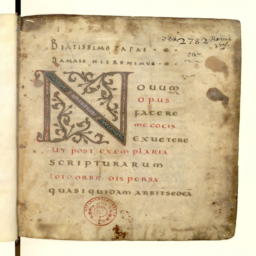 BEATISSIMO PAPAE
DAMASO HIERONIMUS
NOUUM
OPUS
FACERE
ME COGIS
EX UETERE
UT POST EXEMPLARIA
SCRIPTURARUM
TOTO ORBE DISPERSA
QUASI QUIDAM ARBITER SEDEA